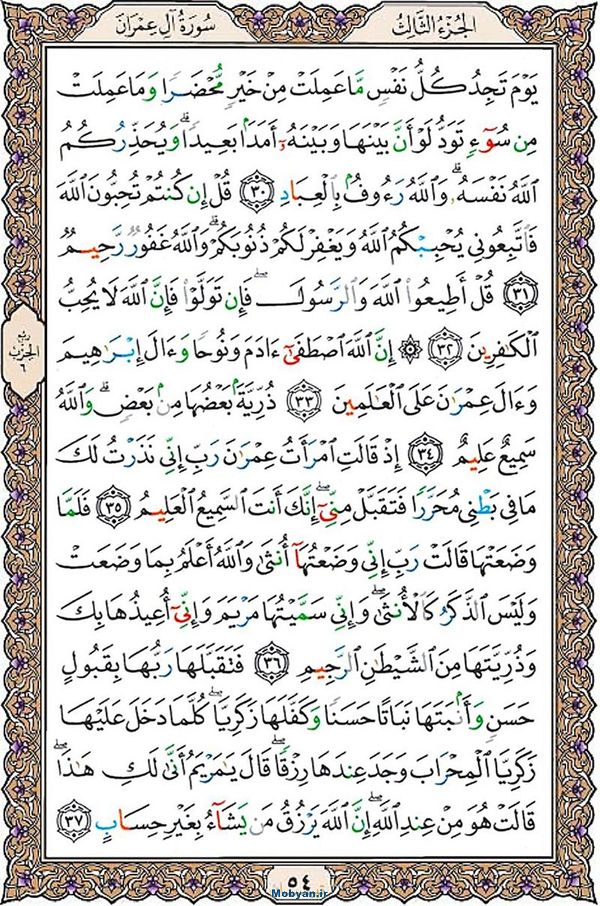 الجُزْءُ الثَّالِثُ
سُورَةُ آلِ عِمْرَانَ
يَوْمَ تَجِدُ كُلُّ نَفْسٍ مَّا عَمِلَتْ مِنْ خَيْرٍ مُّحْضَرًا وَمَا عَمِلَتْ
مِن سُوٓءٍ تَوَدُّ لَوْ أَنَّ بَيْنَهَا وَبَيْنَهُۥٓ أَمَدًۢا بَعِيدًا ۗ وَيُحَذِّرُكُمُ
ٱللَّهُ نَفْسَهُۥ ۗ وَٱللَّهُ رَءُوفٌۢ بِٱلْعِبَادِ ٣٠ قُلْ إِن كُنتُمْ تُحِبُّونَ ٱللَّهَ
فَٱتَّبِعُونِى يُحْبِبْكُمُ ٱللَّهُ وَيَغْفِرْ لَكُمْ ذُنُوبَكُمْ ۗ وَٱللَّهُ غَفُورٌ رَّحِيمٌ
٣١ قُلْ أَطِيعُوا۟ ٱللَّهَ وَٱلرَّسُولَ ۖ فَإِن تَوَلَّوْا۟ فَإِنَّ ٱللَّهَ لَا يُحِبُّ
ٱلْكَٰفِرِينَ ٣٢ ۞ إِنَّ ٱللَّهَ ٱصْطَفَىٰٓ ءَادَمَ وَنُوحًا وَءَالَ إِبْرَٰهِيمَ
وَءَالَ عِمْرَٰنَ عَلَى ٱلْعَٰلَمِينَ ٣٣ ذُرِّيَّةًۢ بَعْضُهَا مِنۢ بَعْضٍ ۗ وَٱللَّهُ
سَمِيعٌ عَلِيمٌ ٣٤ إِذْ قَالَتِ ٱمْرَأَتُ عِمْرَٰنَ رَبِّ إِنِّى نَذَرْتُ لَكَ
مَا فِى بَطْنِى مُحَرَّرًا فَتَقَبَّلْ مِنِّىٓ ۖ إِنَّكَ أَنتَ ٱلسَّمِيعُ ٱلْعَلِيمُ ٣٥ فَلَمَّا
وَضَعَتْهَا قَالَتْ رَبِّ إِنِّى وَضَعْتُهَآ أُنثَىٰ وَٱللَّهُ أَعْلَمُ بِمَا وَضَعَتْ
وَلَيْسَ ٱلذَّكَرُ كَٱلْأُنثَىٰ ۖ وَإِنِّى سَمَّيْتُهَا مَرْيَمَ وَإِنِّىٓ أُعِيذُهَا بِكَ
وَذُرِّيَّتَهَا مِنَ ٱلشَّيْطَٰنِ ٱلرَّجِيمِ ٣٦ فَتَقَبَّلَهَا رَبُّهَا بِقَبُولٍ
حَسَنٍ وَأَنۢبَتَهَا نَبَاتًا حَسَنًا وَكَفَّلَهَا زَكَرِيَّا ۖ كُلَّمَا دَخَلَ عَلَيْهَا
زَكَرِيَّا ٱلْمِحْرَابَ وَجَدَ عِندَهَا رِزْقًا ۖ قَالَ يَٰمَرْيَمُ أَنَّىٰ لَكِ هَٰذَا ۖ
قَالَتْ هُوَ مِنْ عِندِ ٱللَّهِ ۖ إِنَّ ٱللَّهَ يَرْزُقُ مَن يَشَآءُ بِغَيْرِ حِسَابٍ ٣٧
ربع
الحزب
٦
٥٤
Mobyan.ir